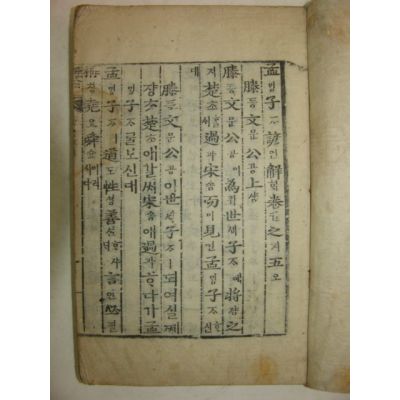 孟ᄆᆡᆼ子ᄌᆞ諺언解ᄒᆡ卷권之지五오
滕등文문公공上샹
滕등文문公공이爲위世셰子ᄌᆞ에將쟝之
지楚초ᄒᆞᆯᄉᆡ過과宋송而이見현孟ᄆᆡᆼ子ᄌᆞᄒᆞ신
대
滕등文문公공이世셰子ᄌᆞㅣ되여실ᄶᅦ
쟝ᄎᆞᆺ楚초애갈ᄉᆡ宋송애過과ᄒᆞ다가孟
ᄆᆡᆼ子ᄌᆞᄅᆞᆯ보신대
孟ᄆᆡᆼ子ᄌᆞㅣ道도性셩善션ᄒᆞ샤ᄃᆡ言언必필
稱칭堯요舜슌이러시다